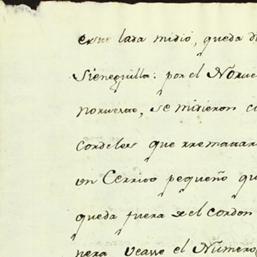 lada midio, queda d
Sieneguilla: por el Norue
noruerae, se midieron c
Cordeles que rrematar
un Cerrico pequeño qu
queda fuera del cordon
pera veasse el Numero